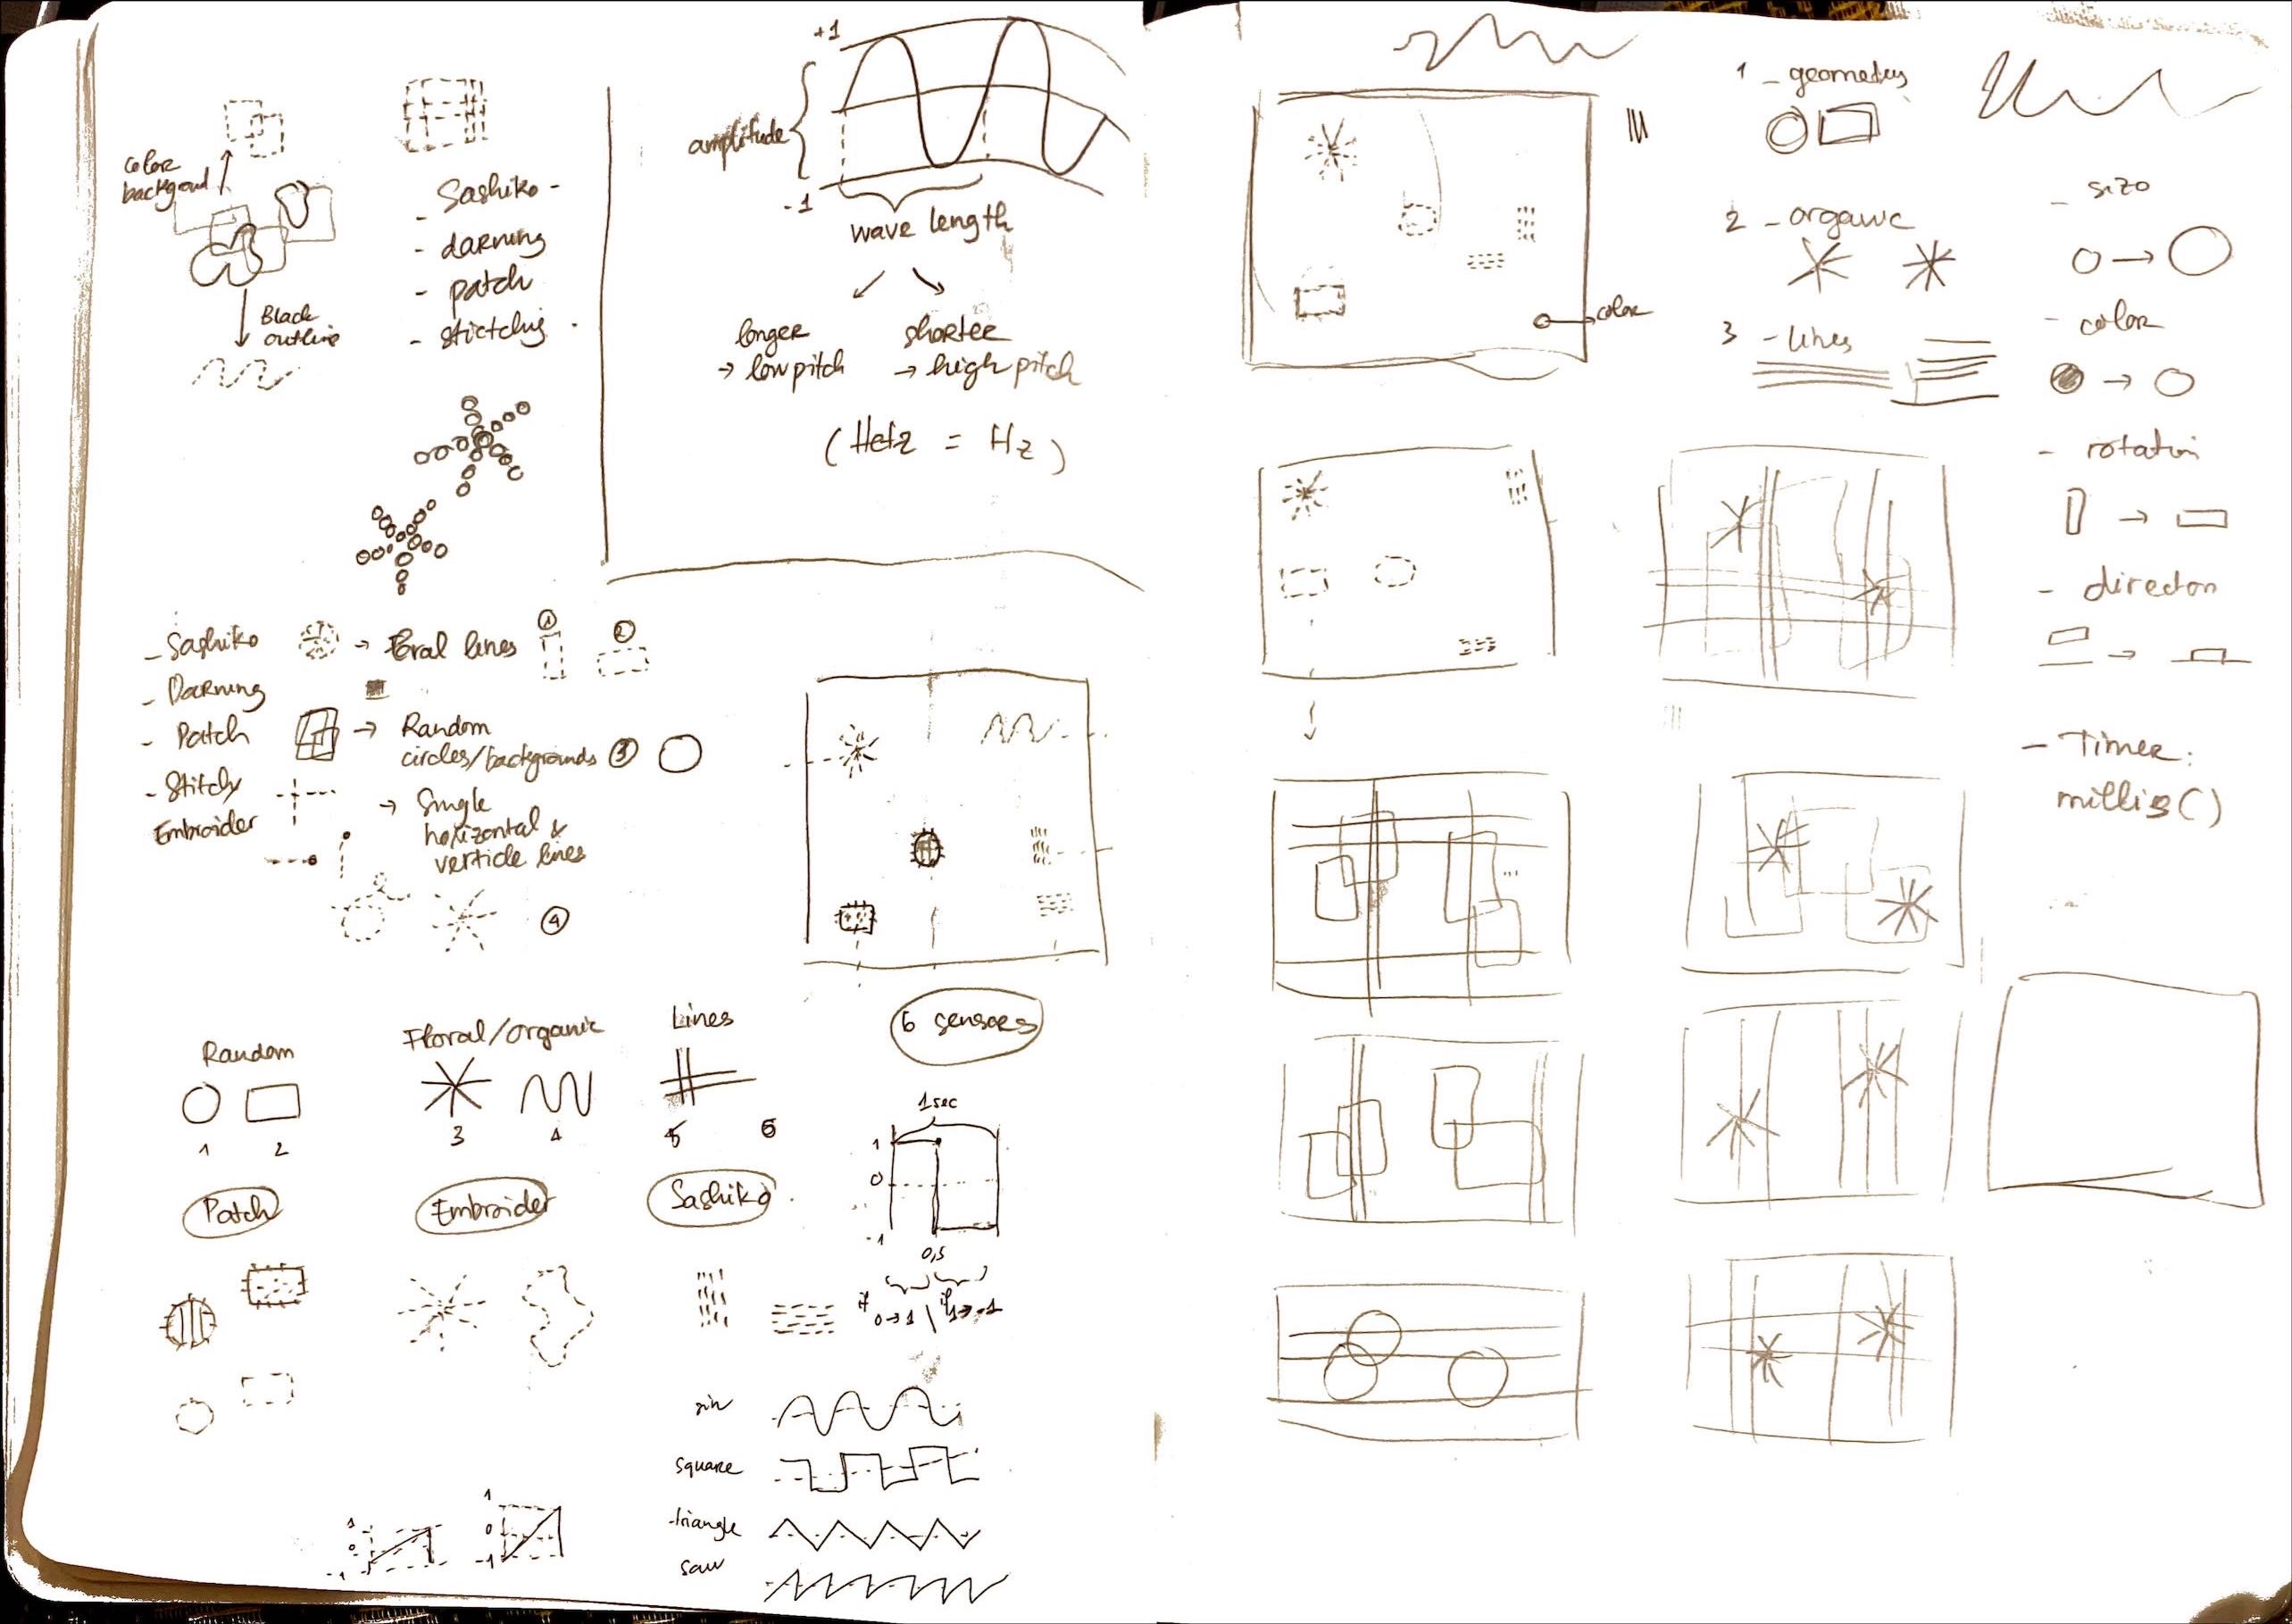 color
backgoud
- Sashiko -
- darning
- patch
- stictchig .
Black
outline
+1
amplitude
-1
wave length
longer
→ low pitch
shorter
→ high pitch
(Hetz = Hz)
- Sashiko
→ Foral lines
1
2
- Darning
- Patch
→ Random
circles/backgrounds 3
- Stitch/
Embroider
→ Single
horizontal &
verticle lines
4
Random
1
2
Floral/organic
3
4
Lines
5
6
6 sensors
Patch
Embroider
Sashiko
1 sec
1
0
-1
0,5
if
0→1
if
1→-1
sin
square
triangle
saw
1
0
-1
1
0
-1
color
1 - geometry
2 - organic
3 - lines
- size
- color
- rotation
- directon
- Timer:
millis()